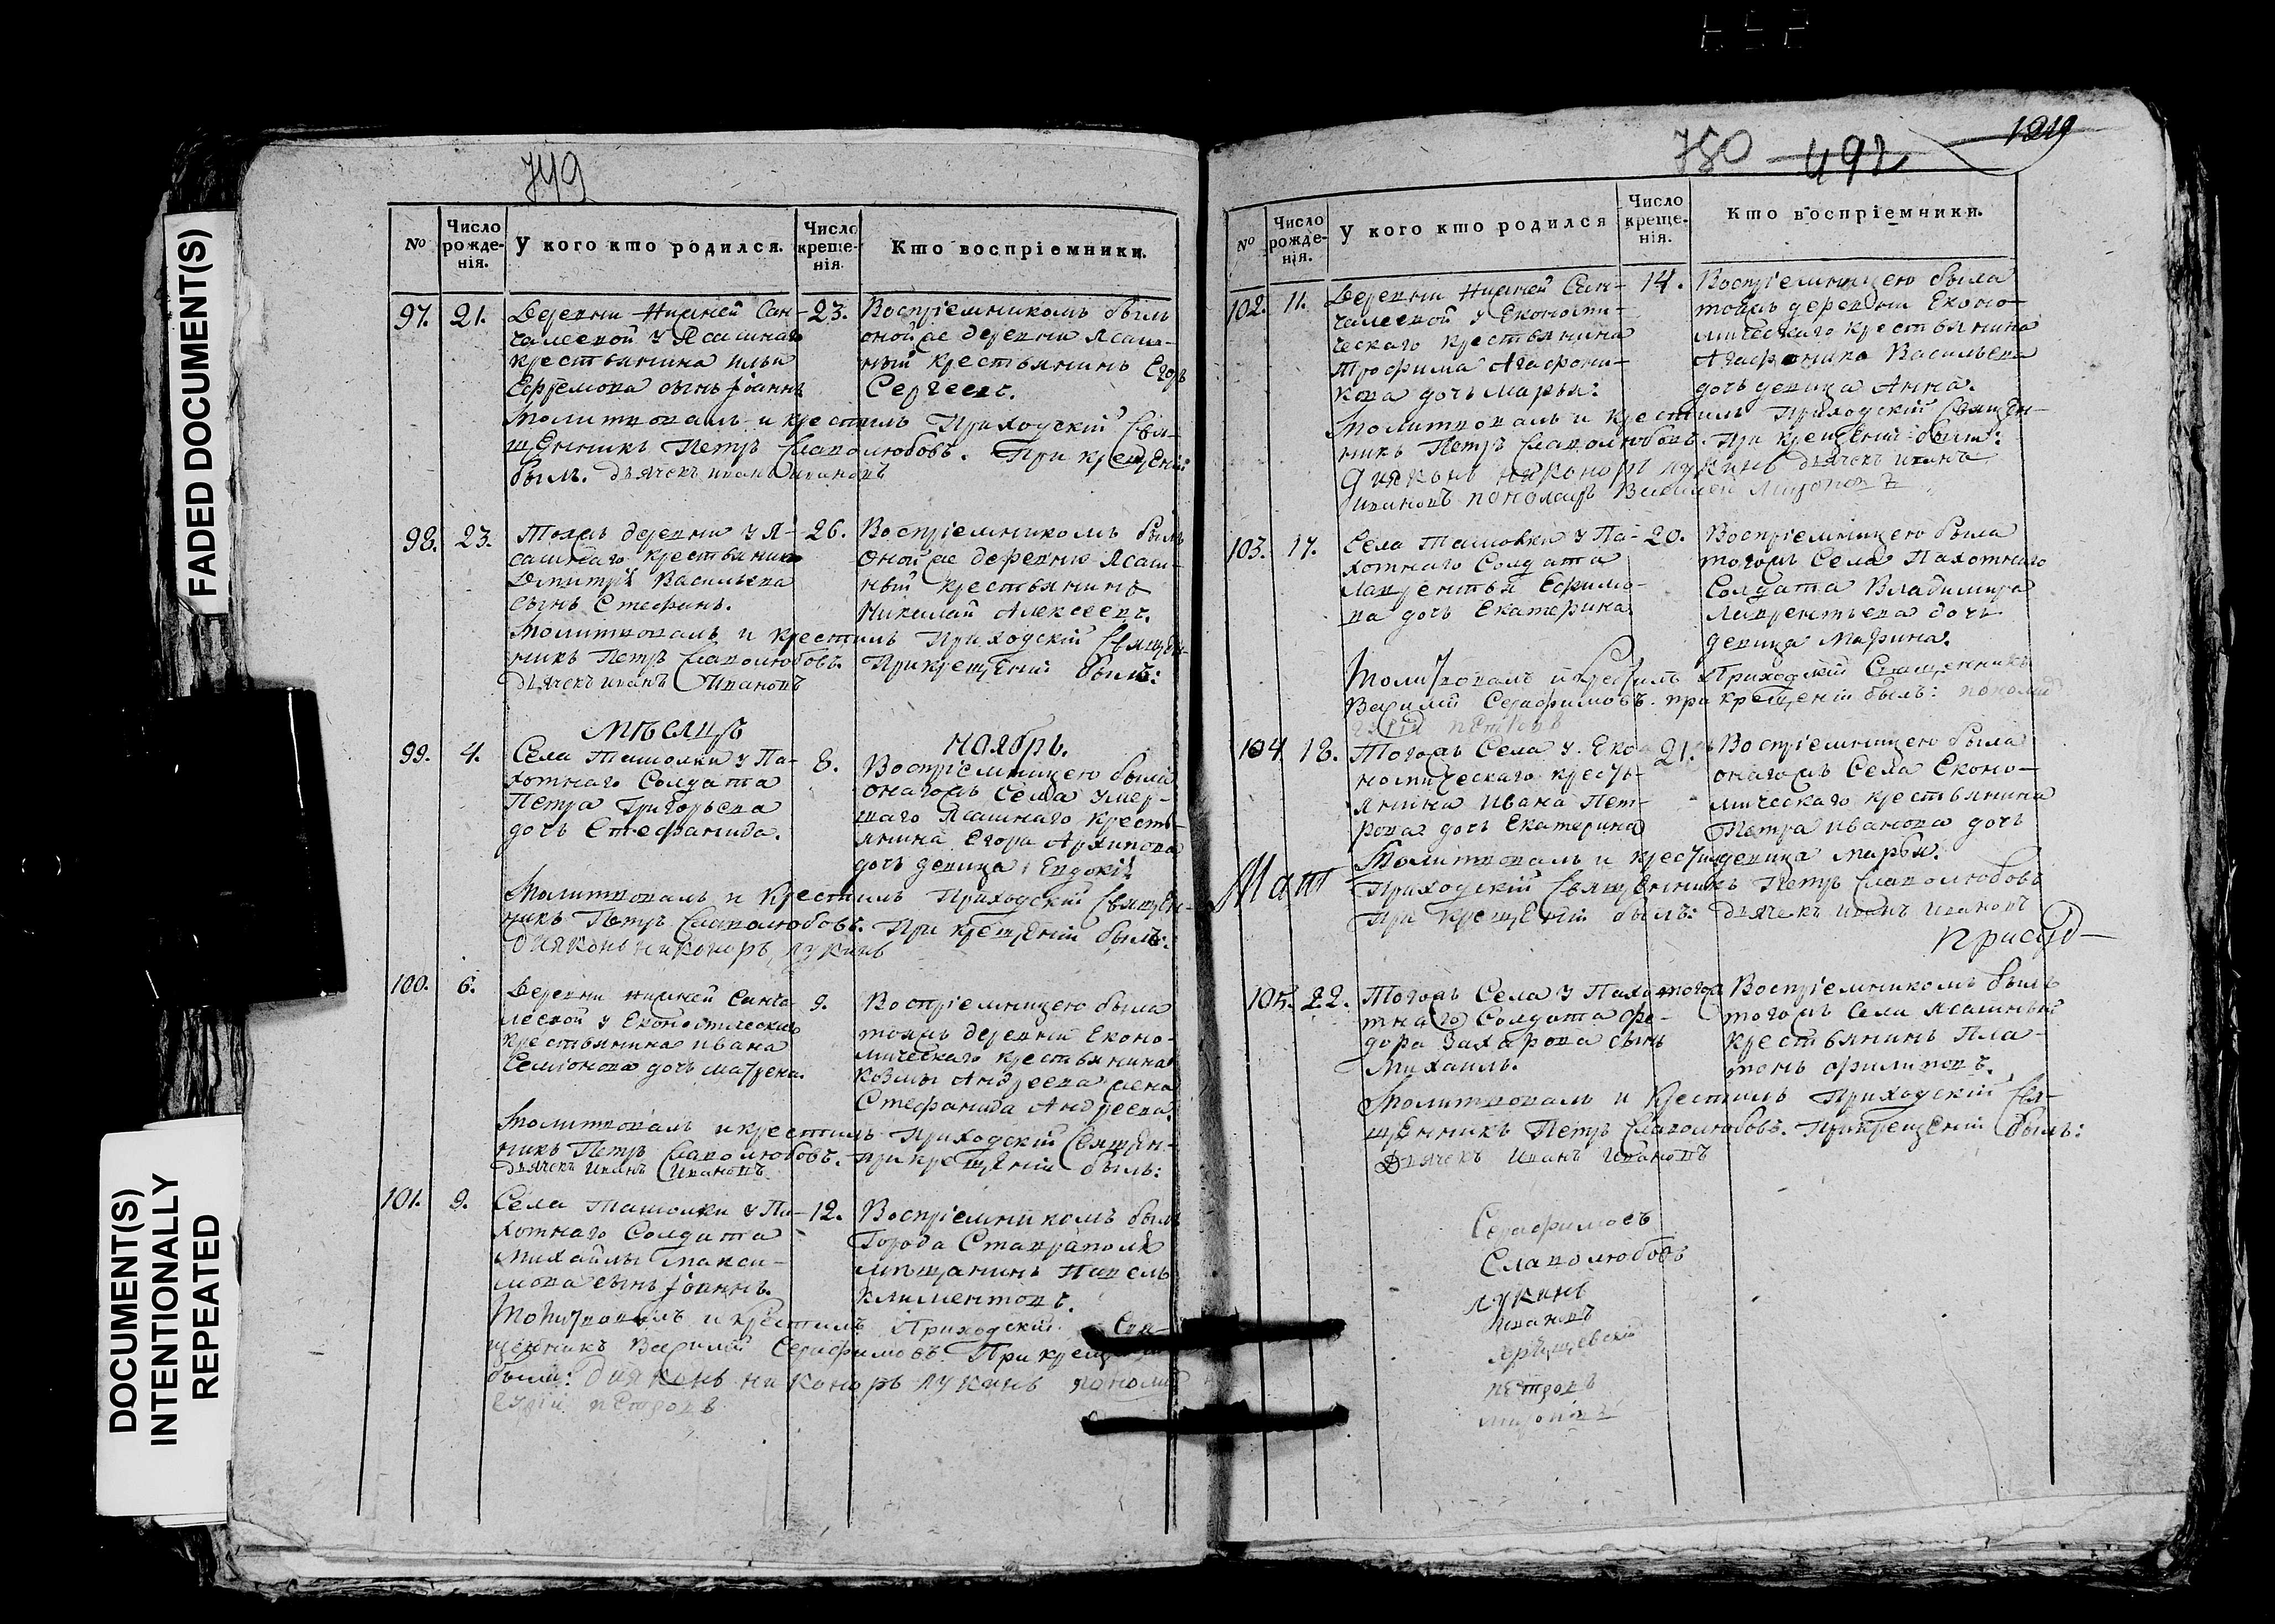 FADED DOCUMENT(S)
DOCUMENT(S)
INTENTIONALLY
REPEATED
749
№
Число рожденія.
У кого кто родился.
Число крещенія.
Кто воспріемники.
97. 21.
Деревни Нижней Сан-
чалеевой у Ясашнаго
крестьянина Ильи
Ефремова сынъ Іоаннъ
23.
Воспріемникомъ былъ
оной же деревни ясаш-
ный крестьянинъ Егоръ
Сергеевъ.
Молитвовалъ и крестилъ Приходскій Свя-
щенникъ Петръ Славолюбовъ. При крещеніи
былъ. дьячекъ иванъ ивановъ
98. 23.
Тояжъ деревни у Я-
сашнаго крестьянина
Дмитрія Васильева
сынъ Стефанъ.
26.
Воспріемникомъ былъ
оной же деревни Ясаш-
ный крестьянинъ
Николай Алексеевъ.
Молитвовалъ и крестилъ Приходскій Священ-
никъ Петръ Славолюбовъ. При крещеніи былъ:
дьячекъ иванъ Ивановъ
Мѣсяцъ
Ноябрь.
99. 4.
Села Ташолки у Па-
хотнаго Солдата
Петра Григорьева
дочь Стефанида.
8.
Воспріемницею была
онагожъ села умер-
шаго Ясашнаго кресть-
янина Егора Архипова
дочь девица Евдокія
Молитвовалъ и крестилъ Приходскій Священ-
никъ Петръ Славолюбовъ. При крещеніи былъ:
диаконъ никоноръ лукинъ
100. 6.
Деревни нижней Санча-
леевой у Економическаго
крестьянина Ивана
Семіонова дочь матрена.
9.
Воспріемницею была
тояжъ деревни Еконо-
мическаго крестьянина
козмы Андреева жена
Стефанида Андреева.
Молитвовалъ и крестилъ Приходскій Священ-
никъ Петръ Славолюбовъ. при крещеніи былъ:
дьячекъ Иванъ Ивановъ
101. 9.
Села Ташолки у Па-
хотнаго Солдата
Михайлы Макси-
мова сынъ Іоаннъ.
12.
Воспріемникомъ былъ
Города Ставраполя
мещанинъ Павелъ
Климентовъ.
Молитвовалъ и крестилъ Приходскій Свя-
щенникъ Василій Серафимовъ. При крещеніи
были: диаконъ никоноръ лукинъ
петровъ
750 492 1219
№
Число рожденія.
У кого кто родился
Число крещенія.
Кто воспріемники.
102. 11.
Деревни Нижней Сан-
чалеевой у Економи-
ческаго крестьянина
Трофима Агафони-
кова дочь Марья:
14.
Воспріемницею была
тояжъ деревни Еконо-
мическаго крестьянина
Агафоника Васильева
дочь девица Анна.
Молитвовалъ и крестилъ Приходскій Священ-
никъ Петръ Славолюбовъ. При крещеніи были:
диаконъ никоноръ лукинъ дьячекъ иванъ
ивановъ пономарь Василей Мироновъ
103. 17.
Села Ташолки у Па-
хотнаго Солдата
Лаврентья Ефимо-
ва дочь Екатерина
20.
Воспріемницею была
тогожъ Села Пахотнаго
Солдата Владимира
Лаврентьева дочь
девица Марина.
Молитвовалъ и крестилъ Приходскій Священникъ
Василій Серафимовъ. при крещеніи былъ:
петровъ
104 18.
Тогожъ Села у Еко-
номическаго кресть-
янина Ивана Пет-
рова дочь Екатерина
21.
Воспріемницею была
онагожъ Села Еконо-
мическаго крестьянина
Петра иванова дочь
девица Марья.
Молитвовалъ и крестилъ
Приходскій Священникъ Петръ Славолюбовъ
При крещеніи былъ: дьячекъ иванъ ивановъ
присуд
105. 22.
Тогожъ Села у Пахо-
тнаго Солдата фе-
дора Захарова сынъ
Михаилъ.
Воспріемникомъ былъ
тогожъ Села Ясашный
крестьянинъ Пла-
тонъ филиповъ.
Молитвовалъ и крестилъ Приходскій Свя-
щенникъ Петръ Славолюбовъ. При крещеніи былъ:
Дьячекъ Иванъ Ивановъ
Серафимовъ
Славолюбовъ
лукинъ
Ивановъ
петровъ
мироновъ